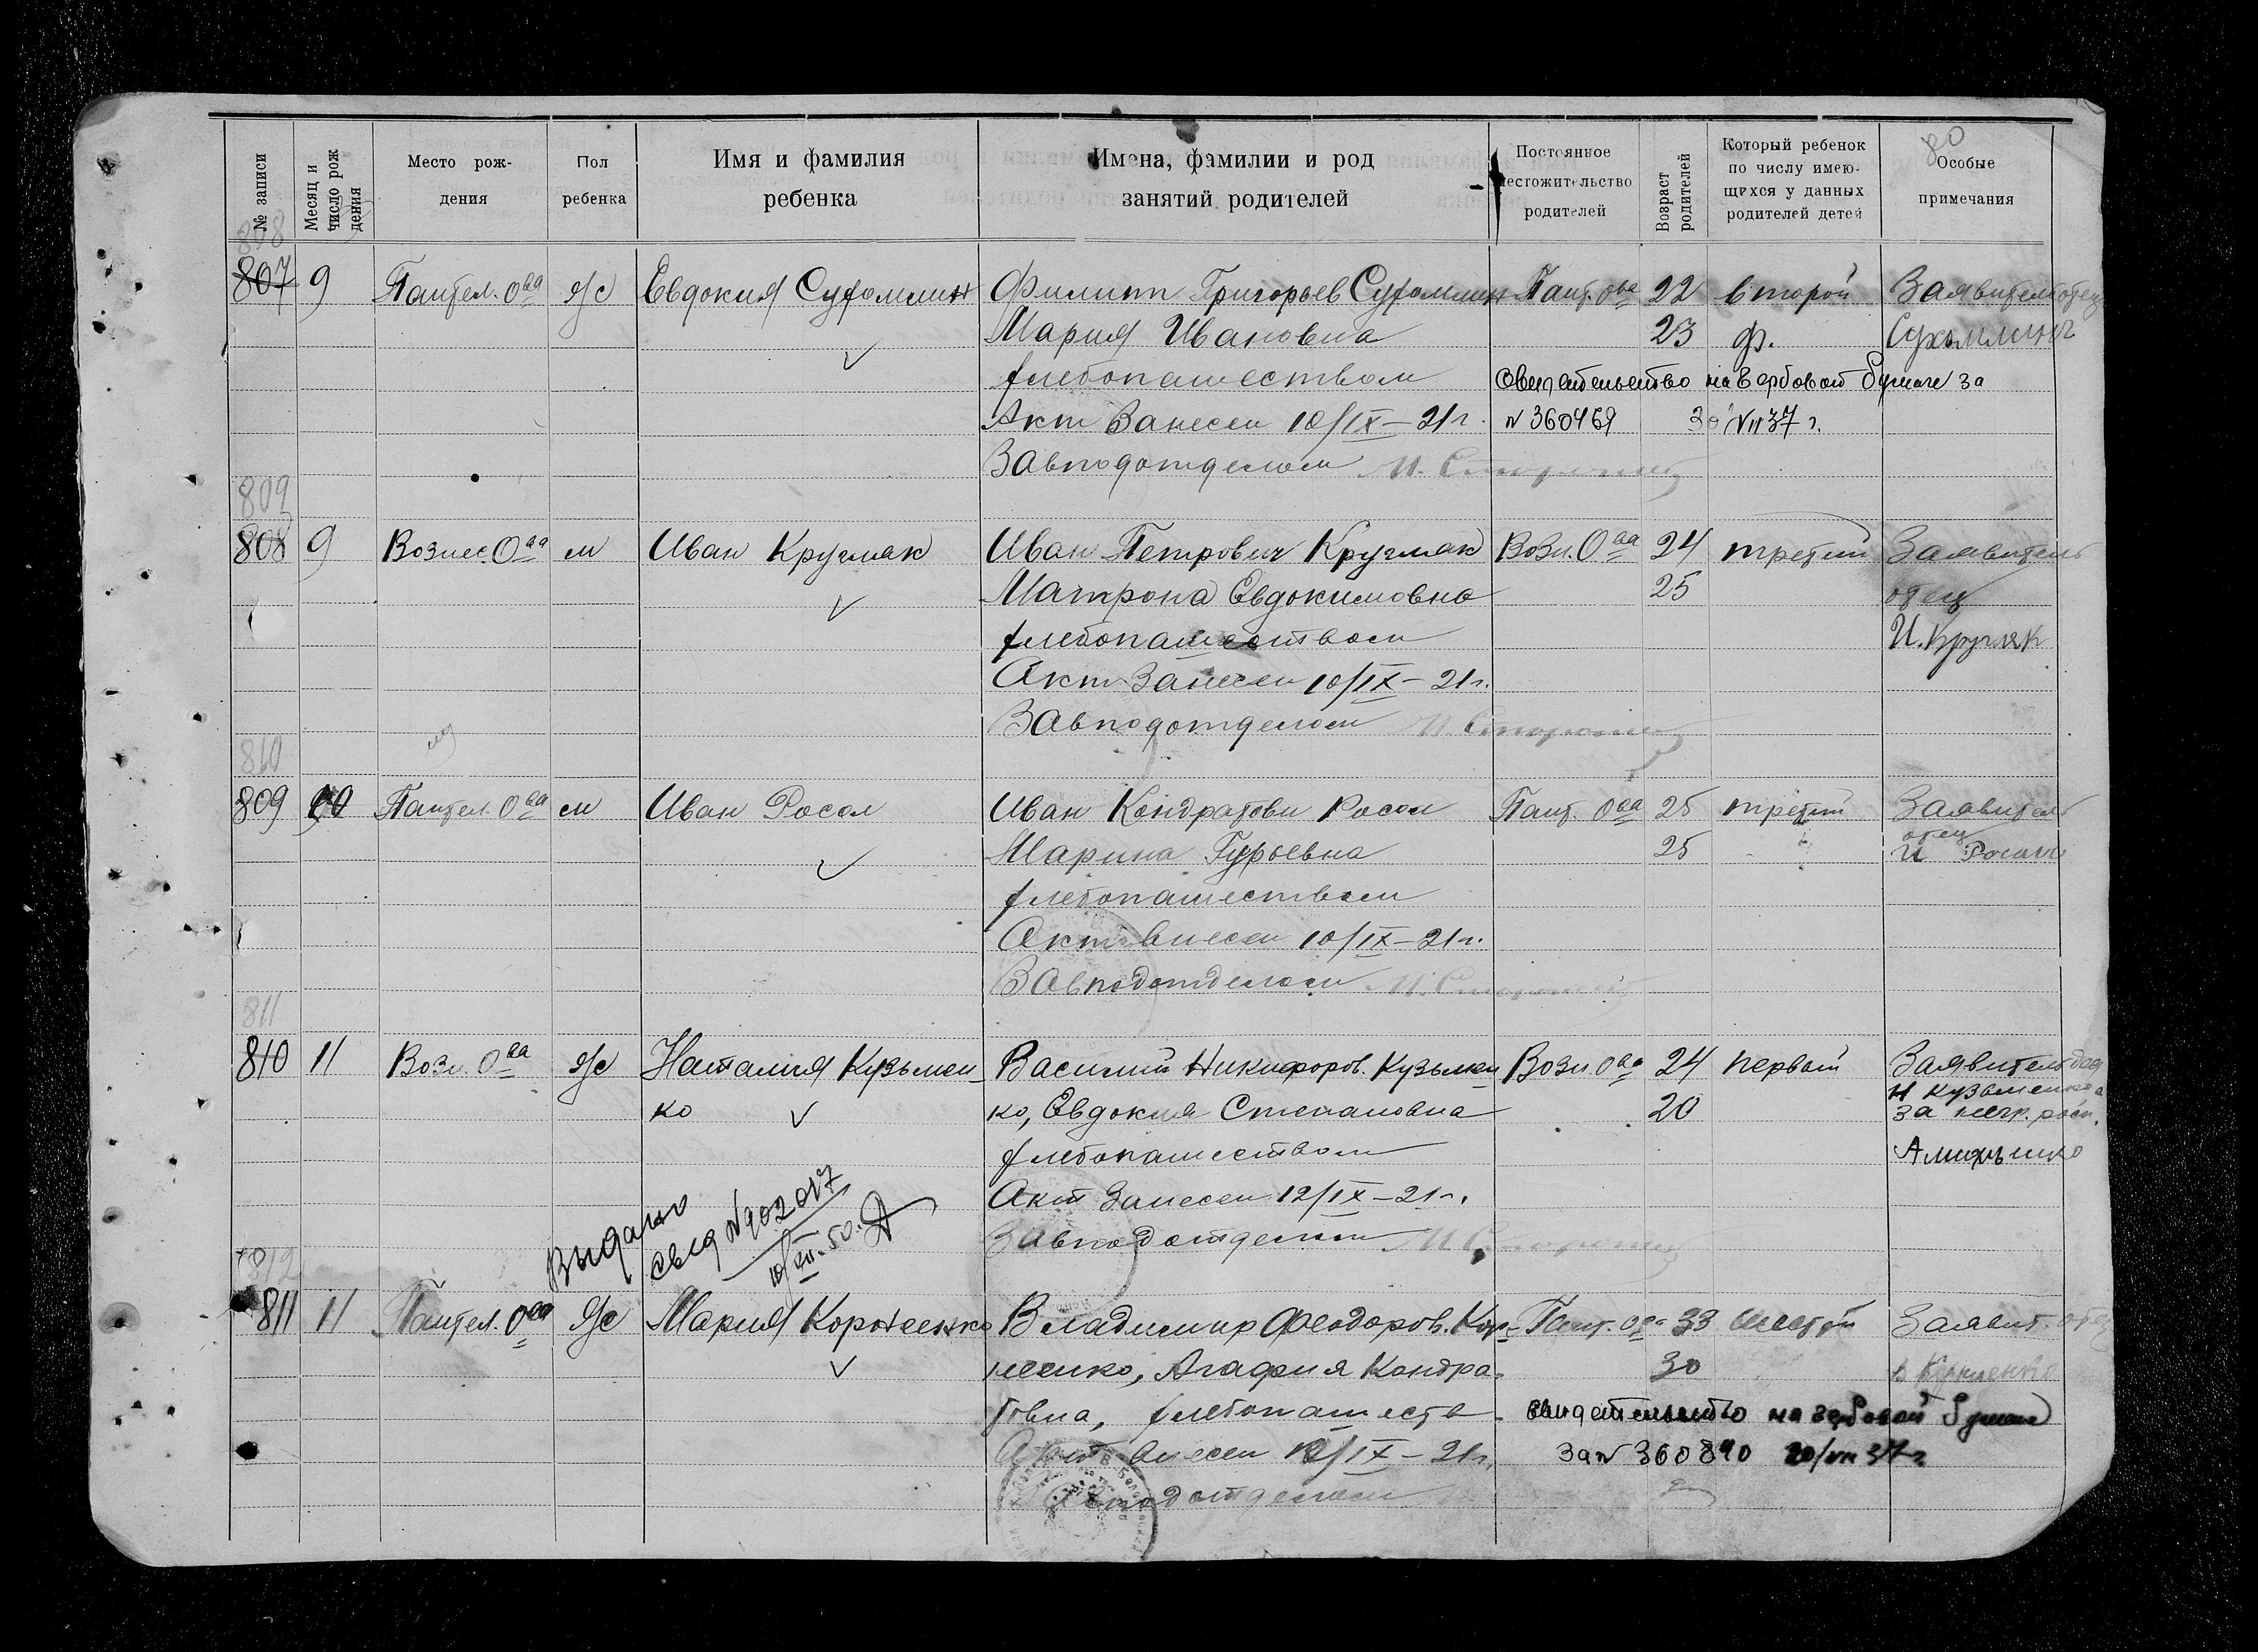 80
№ записи
Месяц и число рож дения
Место рождения
Пол ребенка
Имя и фамилия ребенка
Имена, фамилии и род занятий родителей
Постоянное местожительство родителей
Возраст родителей
Который ребенок по числу имеющихся у данных родителей детей
Особые примечания
808
807 9 Пантел. О-ва ж Евдокия Сухомлин Филипп Григорьев Сухомлин Пант. Ова 22 второй Заявитель отец
Мария Ивановна 23 ф. Сухомлин
хлебопашеством Свидетельство на гербовой бумаге за
Акт Занесен 10/IX–21г. № 360469 30/VII 37 г.
Завподотделом
809
808 9 Вознес. Ова м Иван Кругляк Иван Петрович Кругляк Возн. Ова 24 третий Заявитель
Матрона Евдокимовна 25 отец
хлебопашеством И. Кругляк
Акт Занесен 10/IX–21г.
Завподотделом
810
809 10 Пантел. Ова м Иван Росол Иван Кондратови Росол Пант. Ова 25 третий Заявитель
Марина Гурьевна 25 отец
хлебопашеством И Росол
Акт внесен 10/IX–21г.
Завподотделом
811
810 11 Возн. Ова ж Наталия Кузьмен- Василий Никифоров. Кузьмен Возн Ова 24 первый Заявитель
ко ко, Евдокия Степановна 20 Н Кузьменко
за негр. расп.
хлебопашеством
Акт Занесен 12/IX–21г.
Завподотделом
Выдано
свид № 902017
10/VII-50.
812
811 11 Пантел. Ова ж Мария Корниенко Владимир Феодоров. Кор- Пант. Ова 33 шестой Заявит. отец
ниенко, Агафия Кондра- 30 В Корниенко
товна, хлебопашеств. свидетельство на гербовой бумаге
Акт внесен 12/IX–21г. за № 360890 20/VII 37 г
Завподотделом